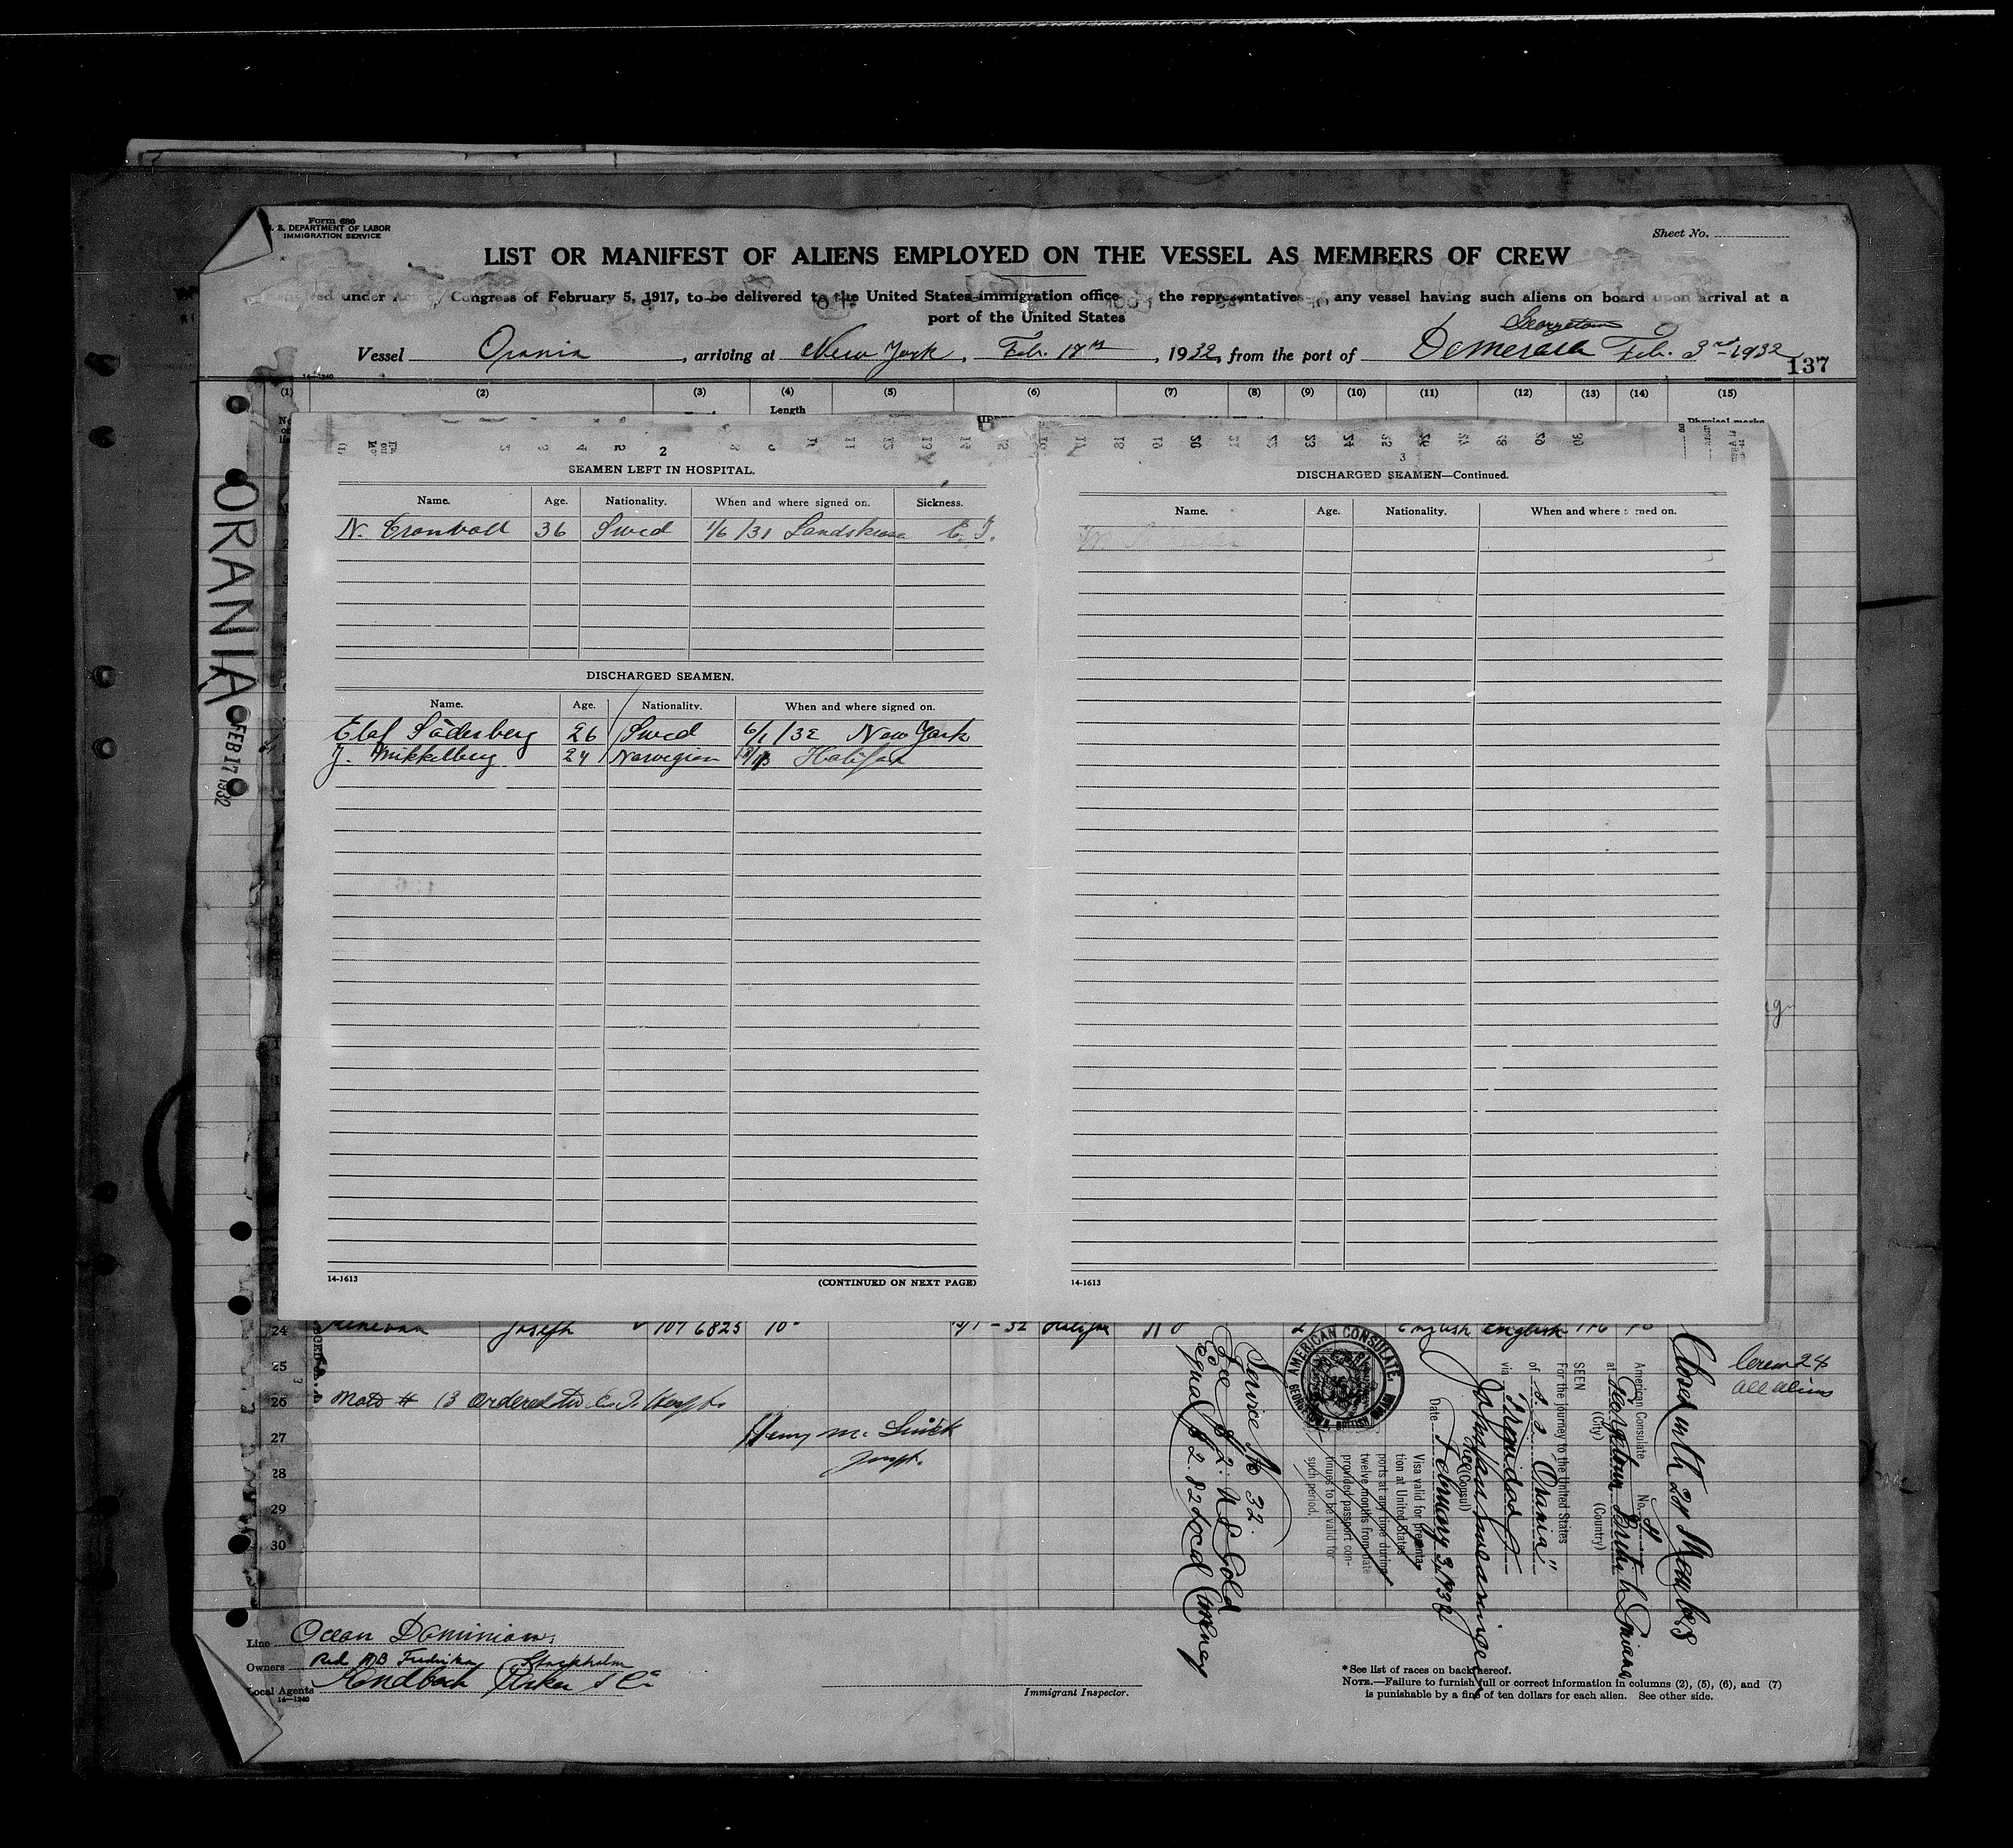 Form 680
U. S. DEPARTMENT OF LABOR
IMMIGRATION SERVICE
Sheet No.
LIST OR MANIFEST OF ALIENS EMPLOYED ON THE VESSEL AS MEMBERS OF CREW
under Act Congress of February 5, 1917, to be delivered to the United States immigration office the representatives any vessel having such aliens on board upon arrival at a
port of the United States
Georgetown
Vessel Orania, arriving at New York, Feb. 17th, 1932, from the port of Demerara Feb. 3rd 1932
137
14-1240
(1) (2) (3) (4) (5) (6) (7) (8) (9) (10) (11) (12) (13) (14) (15)
Length
Physical marks
ORANIA
FEB 17 1932
2
SEAMEN LEFT IN HOSPITAL.
Name. Age. Nationality. When and where signed on. Sickness.
N. Cronvall 36 Swed 1/6/31 Landskrona
DISCHARGED SEAMEN.
Name. Age. Nationality. When and where signed on.
Elof Söderberg 26 Swed 6/1/32 New York
J. Mikkelberg 24 Norwegian Halifax
14-1613
(CONTINUED ON NEXT PAGE)
3
DISCHARGED SEAMEN—Continued.
Name. Age. Nationality. When and where signed on.
14-1613
24 Joseph 10 - 32 Halifax No English English
25
26 # 13 ordered to
27 Henry Mc
Insp.
28
29
30
Crew 24
all aliens
Closed with 24 Members
American Consulate No.
at Georgetown British Guiana
(City) (Country)
SEEN
For the journey to the United States
of S. S. "Orania"
via Trinidad
Vice (Consul)
Date February 3, 1932
Visa valid for presentation at United States ports at any time during twelve months from date provided passport continues to be valid for such period.
AMERICAN CONSULATE
GEORGETOWN BRITISH GUIANA
Service No 32.
Fee $2. U S Gold
Equal $2.82 Local Currency
Line Ocean Dominion.
Owners Red AB Fredrika, Stockholm
Local Agents Sandbach Parker & Co
14-1240
Immigrant Inspector.
*See list of races on back hereof.
NOTE.—Failure to furnish full or correct information in columns (2), (5), (6), and (7)
is punishable by a fine of ten dollars for each alien. See other side.